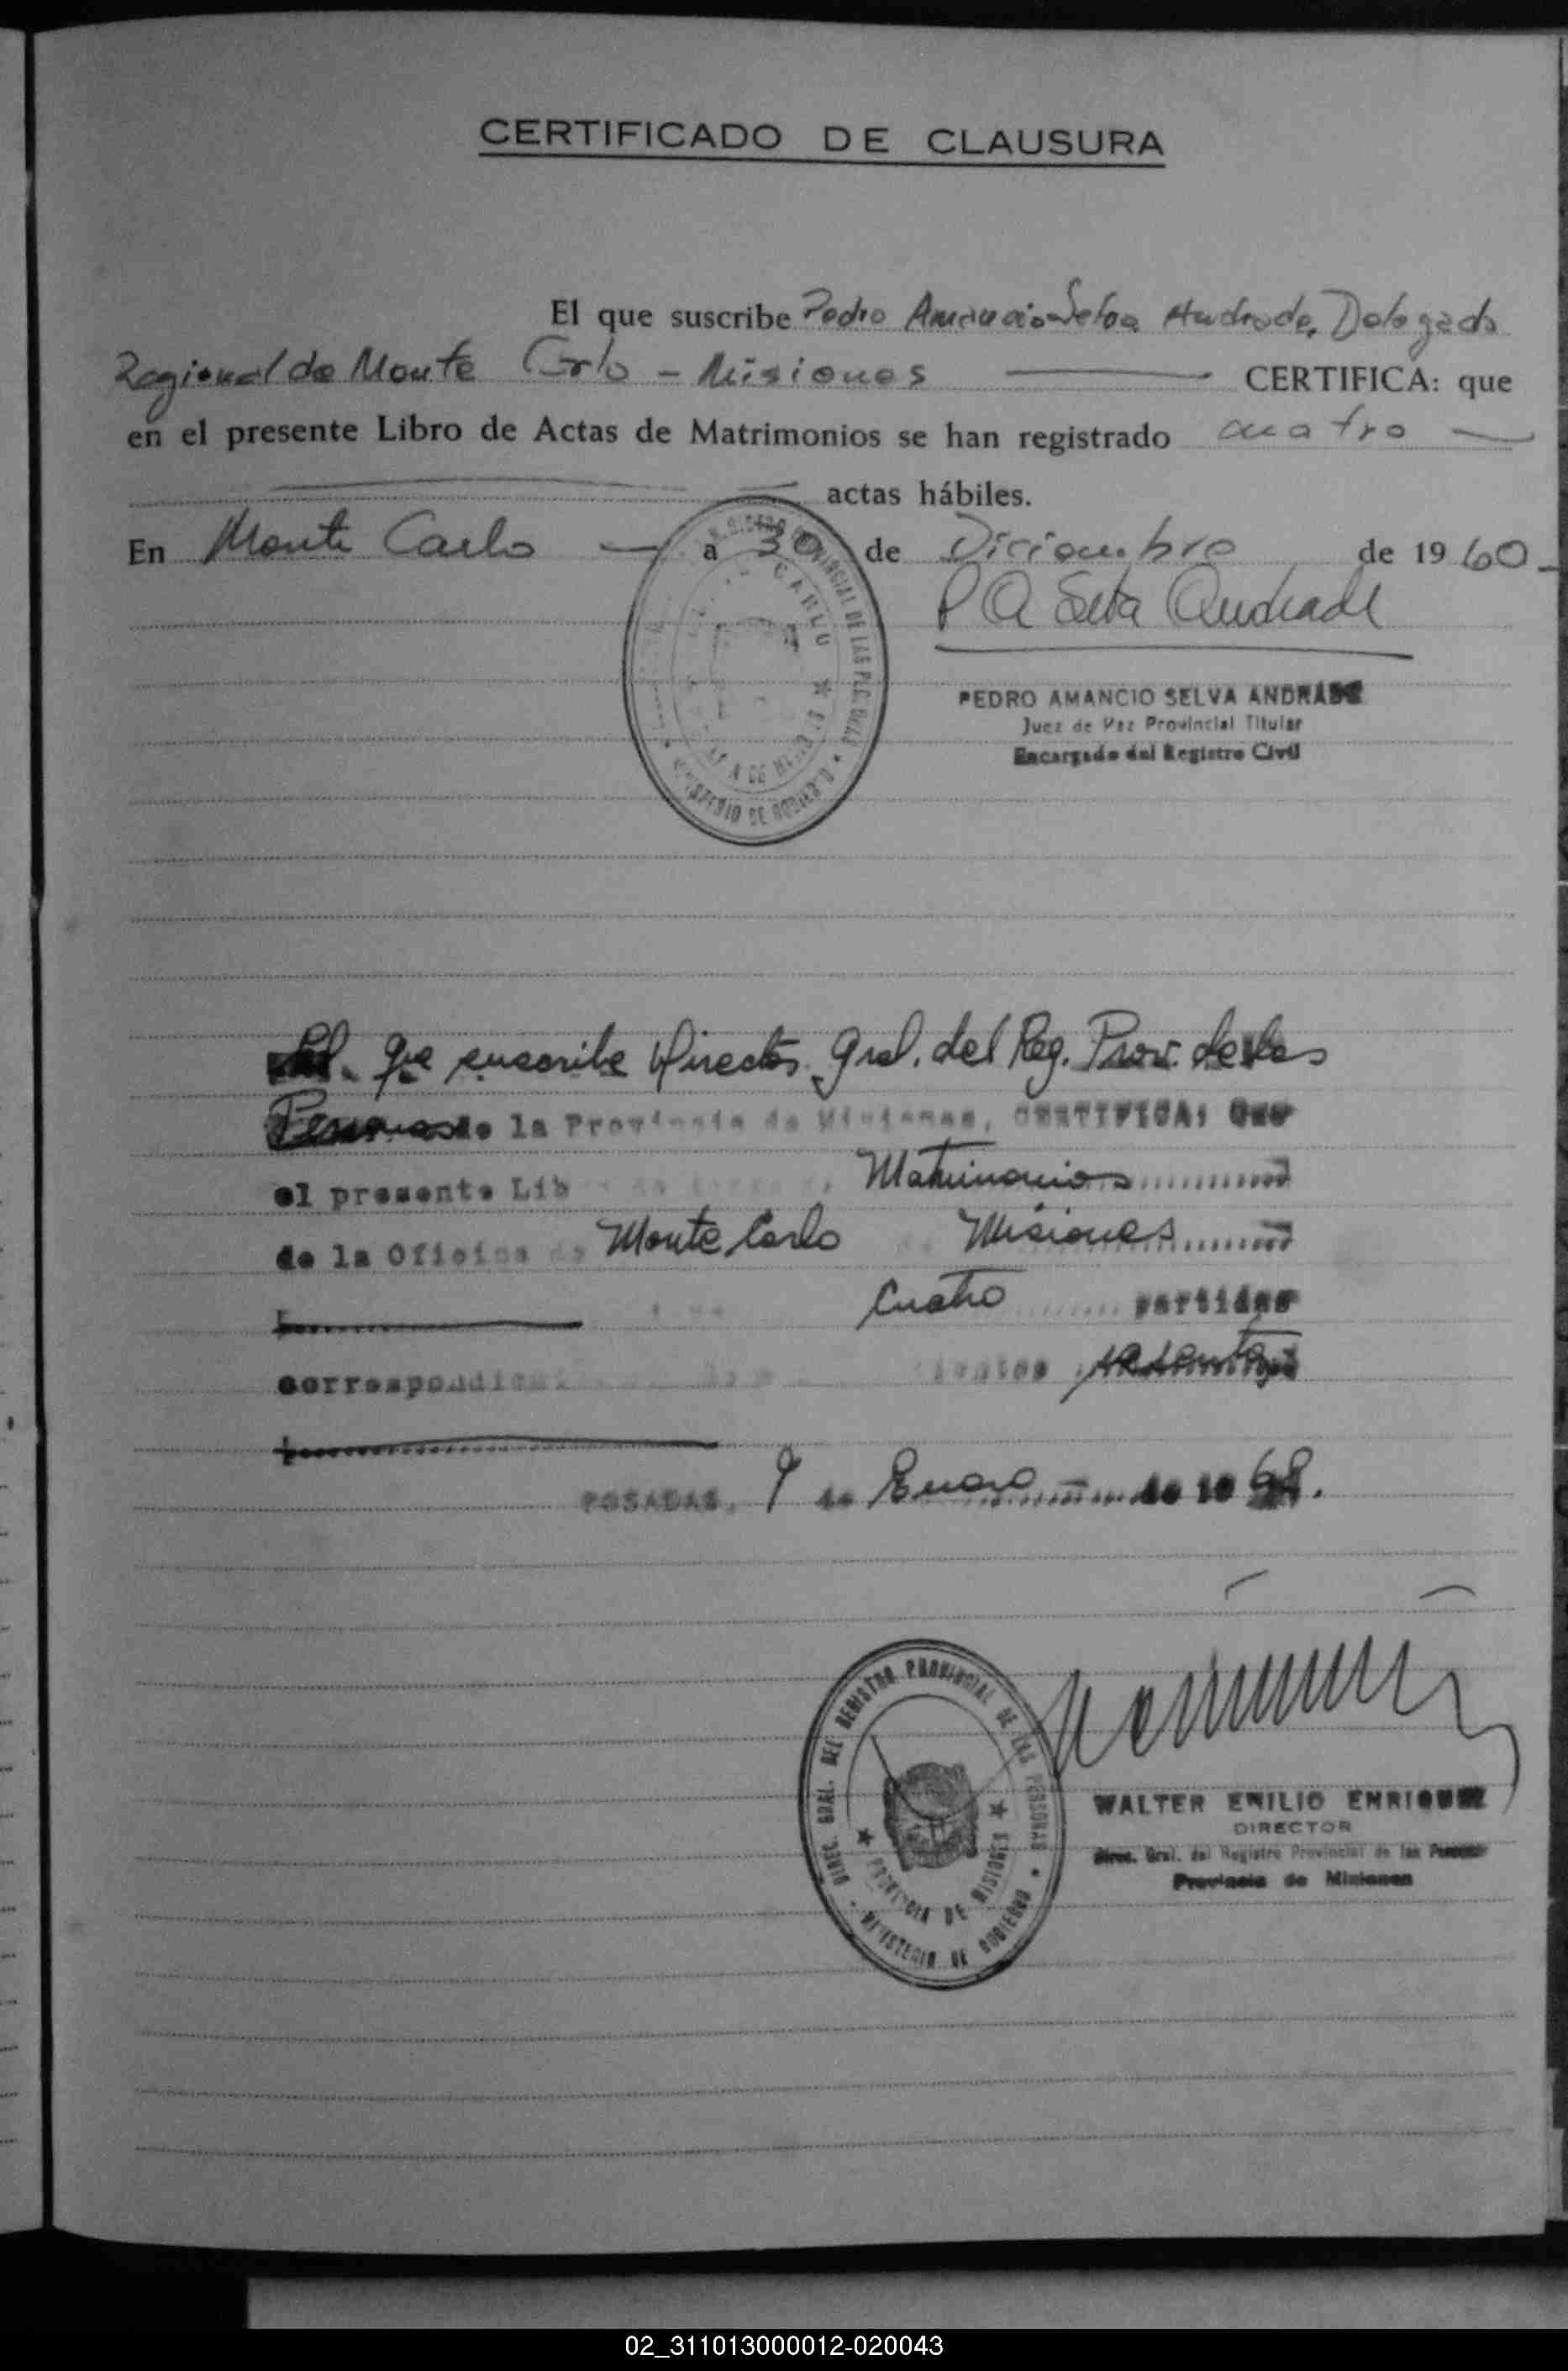 CERTIFICADO DE CLAUSURA
El que suscribe Pedro Amancio Selva Andrade, Delegado
Regional de Monte Carlo - Misiones — CERTIFICA: que
en el presente Libro de Actas de Matrimonios se han registrado cuatro —
actas hábiles.
En Monte Carlo — a 30 de Diciembre de 1960_
P A Selva Andrade
PEDRO AMANCIO SELVA ANDRADE
Juez de Paz Provincial Titular
Encargado del Registro Civil
CARLO
MINISTERIO DE GOBIERNO
El que suscribe Director Gral. del Reg. Prov. de las
Personas de la Provincia de Misiones, CERTIFICA: Que
el presente Lib Matrimonios
de la Oficina de Monte Carlo Misiones
Cuatro partidas
sesenta
POSADAS, 9 de Enero de 19
DIREC. GRAL. DEL REGISTRO PROVINCIAL DE LAS PERSONAS
PROVINCIA DE MISIONES
MINISTERIO DE GOBIERNO
WALTER EMILIO ENRIQUEZ
DIRECTOR
Direc. Gral. del Registro Provincial de las Personas
Provincia de Misiones
02_311013000012-020043